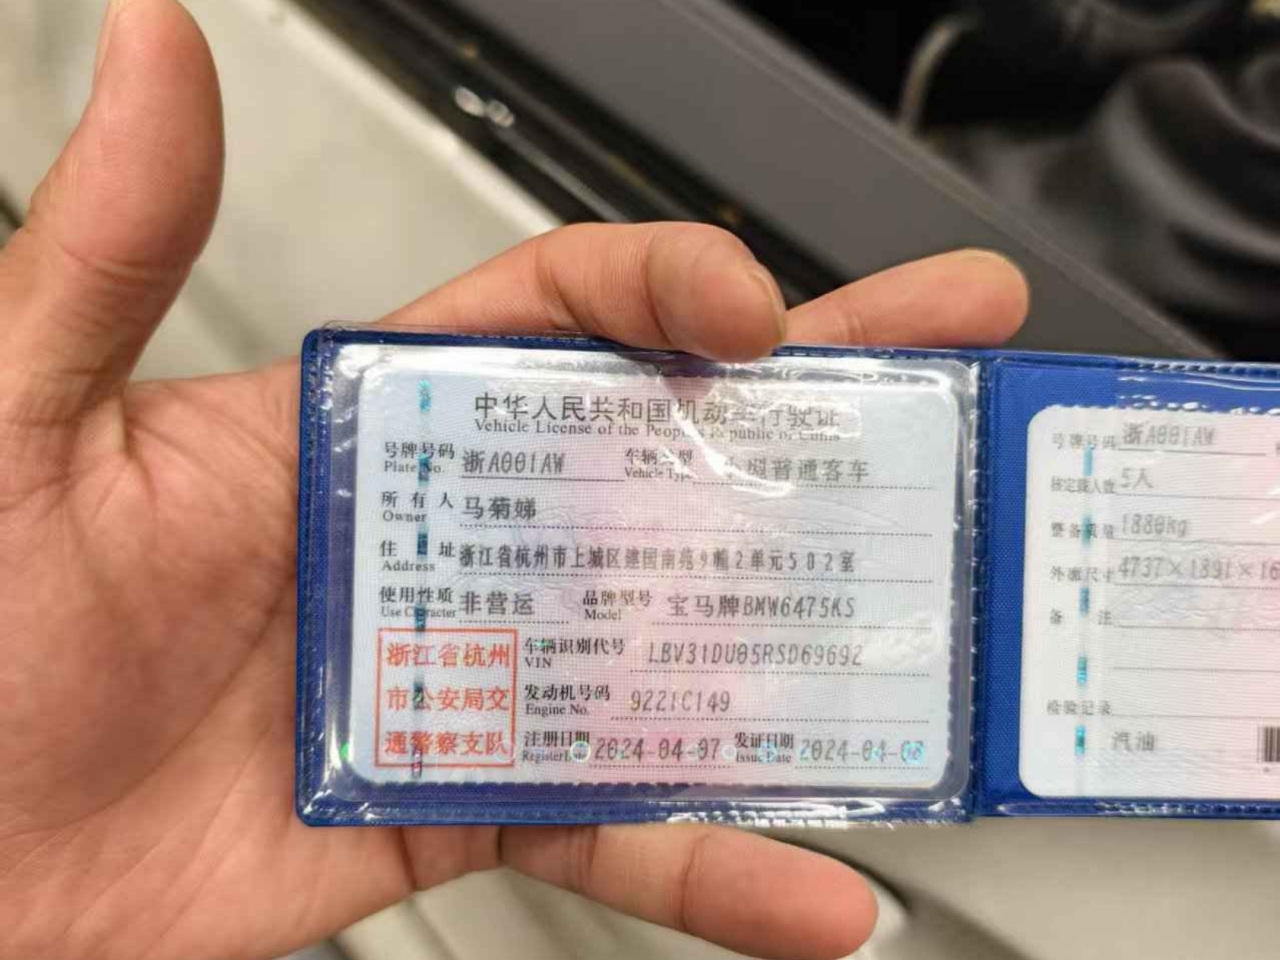 中华人民共和国机动车行驶证
Vehicle License of the People's Republic of China
号牌号码 浙A001AW 车辆类型 小型普通客车
Plate No. Vehicle Type
所有人 马菊娣
Owner
住址 浙江省杭州市上城区建国南苑9幢2单元502室
Address
使用性质 非营运 品牌型号 宝马牌BMW6475KS
Use Character Model
浙江省杭州
市公安局交
通警察支队
车辆识别代号 LBV31DU05RSD69692
VIN
发动机号码 9221C149
Engine No.
注册日期 2024-04-07 发证日期 2024-04-08
Register Date Issue Date
号牌号码 浙A001AW
核定载人数 5人
整备质量 1880kg
外廓尺寸 4737×1891×16
备注
检验记录
汽油